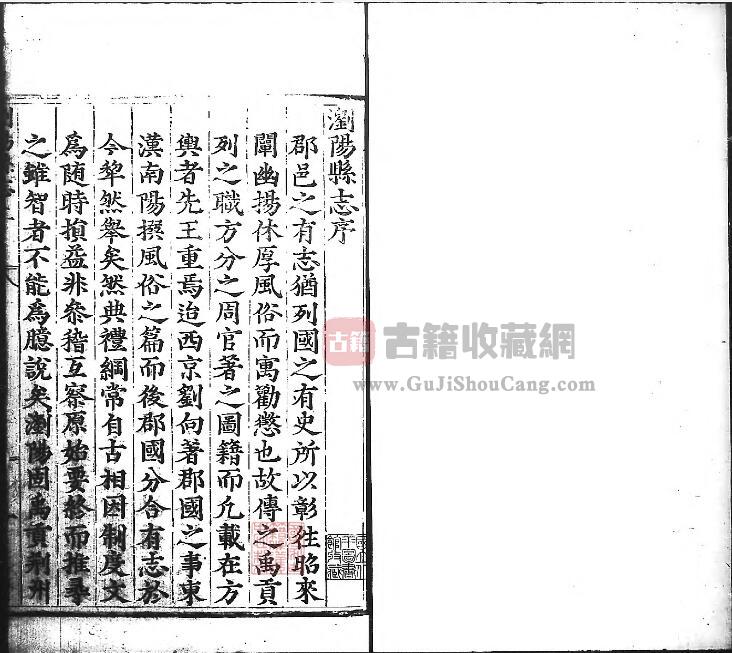 瀏陽縣志序
郡邑之有志猶列國之有史所以彰徃昭來
闡幽揚休厚風俗而寓勸懲也故傳之禹貢
列之職方分之周官著之圖籍而凢載在方
輿者先王重焉迨西京劉向著郡國之事東
漢南陽撰風俗之篇而後郡國分合有志於
今犂然舉矣然典禮綱常自古相因制度文
為随時損益非叅稽互察原始要終而推尋
之雖智者不能爲臆說矣瀏陽固禹貢荆州
古籍 古籍收藏網
www.GuJiShouCang.com